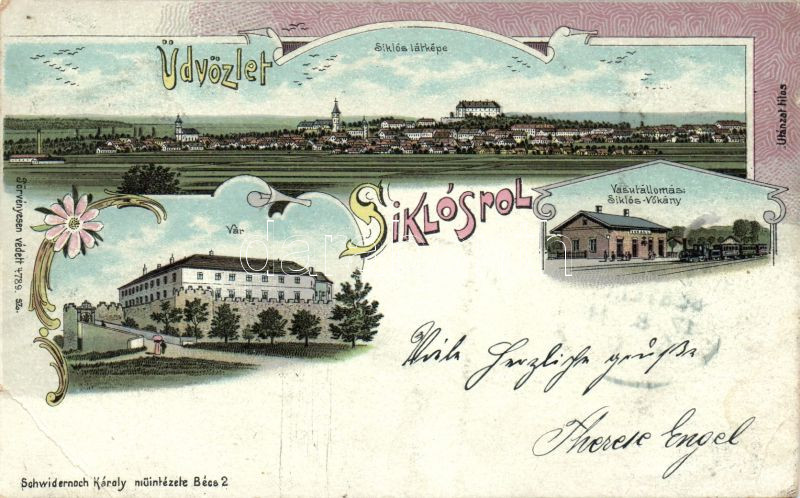 Üdvözlet
Siklós látképe
Utánzat tilos
Törvényesen védett 4789. sz.
Vár
SIKLÓSROL
Vasutállomás:
Siklós-Vókány
Viele Herzliche grüße
Therese Engel
Schwidernoch Károly müintézete Bécs 2